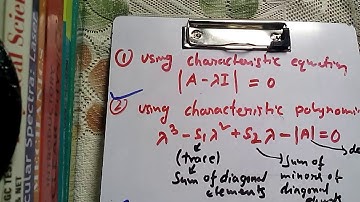 ① using characteristic equation
|A - λI| = 0
② using characteristic polynomi
λ³ - S₁λ² + S₂λ - |A| = 0
(trace)
Sum of diagonal
elements
Sum of
minors of
diagonal
de
Spectra: Laser